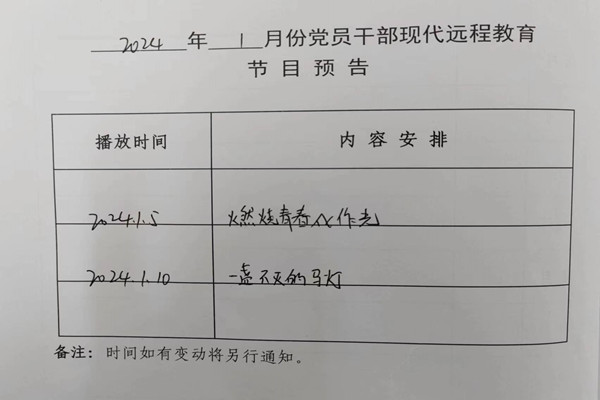 2024 年 1 月份党员干部现代远程教育
节目预告
播放时间 内容安排
2024.1.5 燃烧青春以作光
2024.1.10 一盏不灭的马灯
备注：时间如有变动将另行通知。